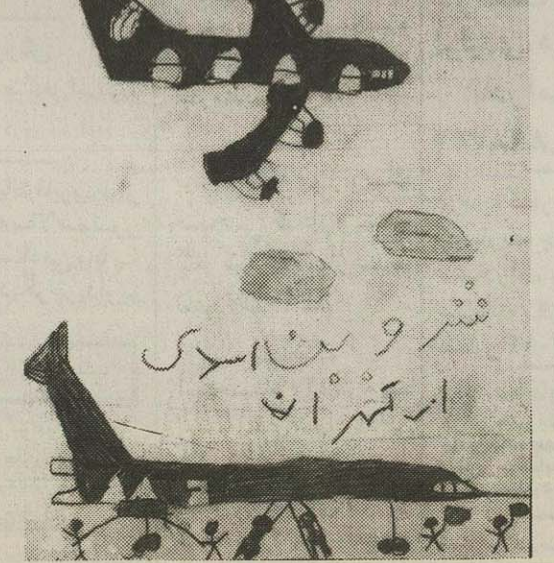 شروین اسدی
از تهران